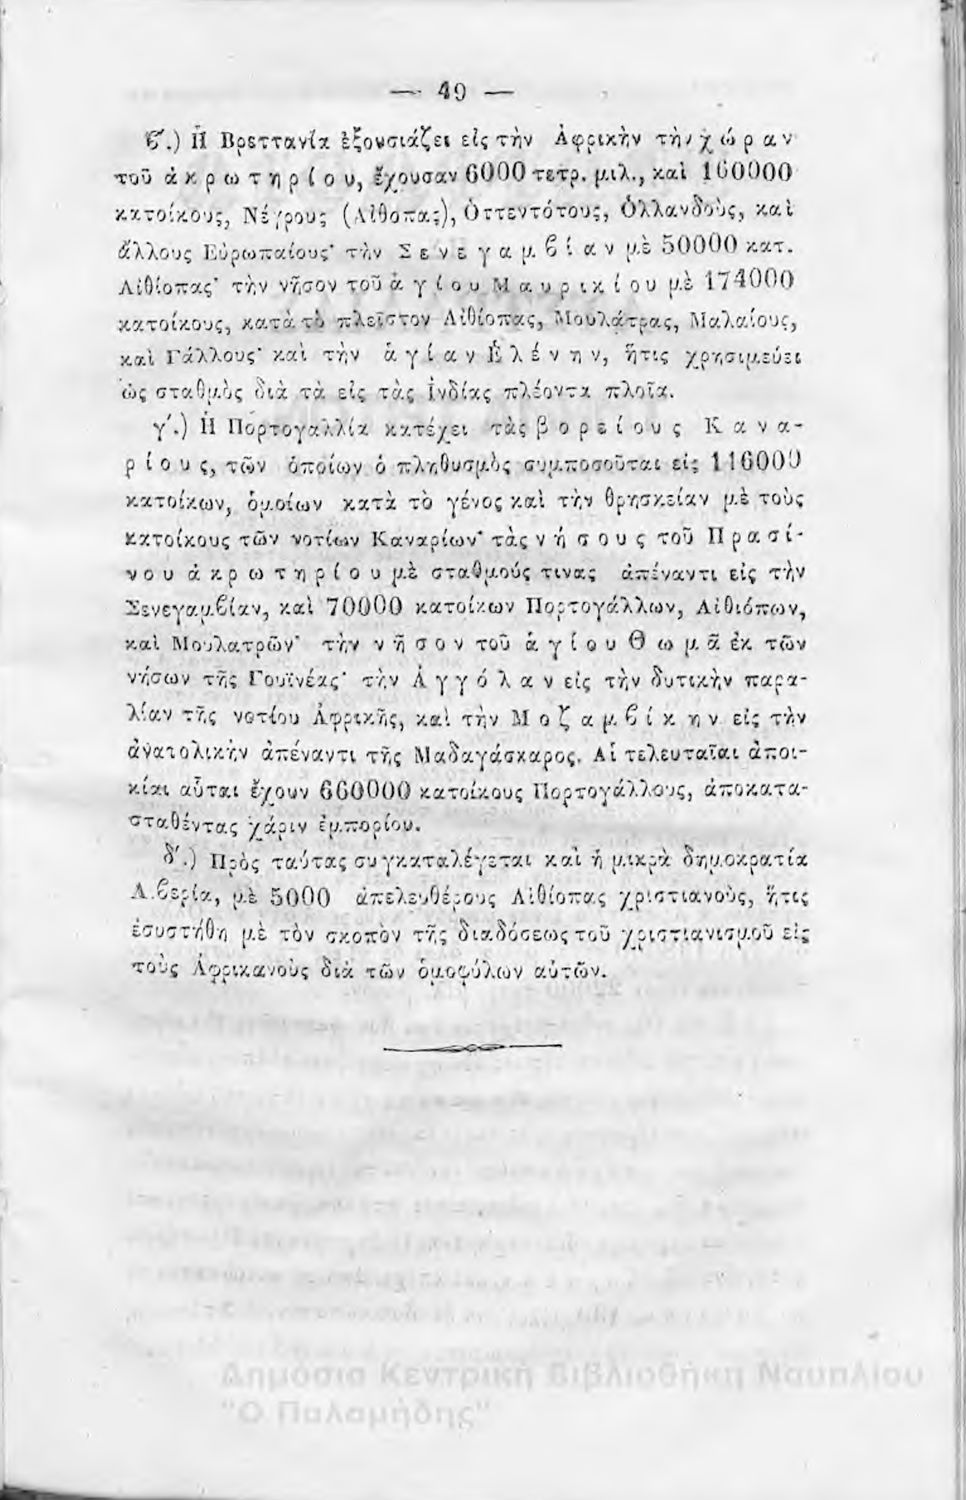 — 49 —
ϐʹ.) Ἡ Βρεττανία ἐξουσιάζει εἰς τὴν Ἀφρικὴν τὴν χώραν
τοῦ ἀκρωτηρίου, ἔχουσαν 6000 τετρ. μιλ., καὶ 160000
κατοίκους, Νέγρους (Αἰθοπας), Ὁττεντότους, Ὁλλανδοὺς, καὶ
ἄλλους Εὐρωπαίους· τὴν Σενεγαμϐίαν μὲ 50000 κατ.
Αἰθίοπας· τὴν νῆσον τοῦ ἁγίου Μαυρικίου μὲ 174000
κατοίκους, κατὰ τὸ πλεῖστον Αἰθίοπας, Μουλάτρας, Μαλαίους,
καὶ Γάλλους· καὶ τὴν ἁγίαν Ἑλένην, ἥτις χρησιμεύει
ὡς σταθμὸς διὰ τὰ εἰς τὰς Ἰνδίας πλέοντα πλοῖα.
γʹ.) Ἡ Πορτογαλλία κατέχει τὰς βορείους Κανα-
ρίους, τῶν ὁποίων ὁ πληθυσμὸς συμποσοῦται εἰς 116000
κατοίκων, ὁμοίων κατὰ τὸ γένος καὶ τὴν θρησκείαν μὲ τοὺς
κατοίκους τῶν νοτίων Καναρίων· τὰς νήσους τοῦ Πρασί-
νου ἀκρωτηρίου μὲ σταθμούς τινας ἀπέναντι εἰς τὴν
Σενεγαμϐίαν, καὶ 70000 κατοίκων Πορτογάλλων, Αἰθιόπων,
καὶ Μουλατρῶν· τὴν νῆσον τοῦ ἁγίου Θωμᾶ ἐκ τῶν
νήσων τῆς Γουϊνέας· τὴν Ἀγγόλαν εἰς τὴν δυτικὴν παρα-
λίαν τῆς νοτίου Ἀφρικῆς, καὶ τὴν Μοζαμϐίκην εἰς τὴν
ἀνατολικὴν ἀπέναντι τῆς Μαδαγάσκαρος. Αἱ τελευταῖαι ἀποι-
κίαι αὗται ἔχουν 660000 κατοίκους Πορτογάλλους, ἀποκατα-
σταθέντας χάριν ἐμπορίου.
δʹ.) Πρὸς ταύτας συγκαταλέγεται καὶ ἡ μικρὰ δημοκρατία
Λιϐερία, μὲ 5000 ἀπελευθέρους Αἰθίοπας χριστιανοὺς, ἥτις
ἐσυστήθη μὲ τὸν σκοπὸν τῆς διαδόσεως τοῦ χριστιανισμοῦ εἰς
τοὺς Ἀφρικανοὺς διὰ τῶν ὁμοφύλων αὐτῶν.
Δημόσια Κεντρική Βιβλιοθήκη Ναυπλίου
"Ο Παλαμήδης"